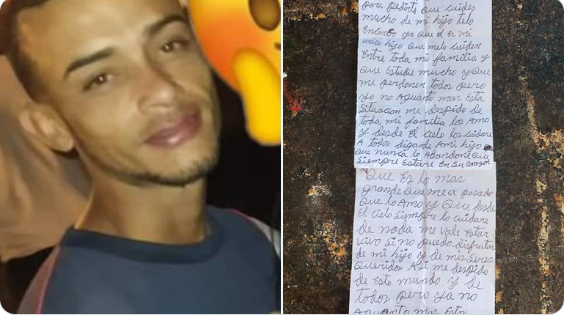 para Pedirte que cuides
mucho de mi hijo telo
Encargo ya que el es mi
unico hijo que melo cuiden
Entre toda mi familia y
que Estudie mucho y que
me perdonen todos pero
yo no Aguanto mas Esta
Situacion me despido de
toda mi familia los Amo
y desde El cielo los cuidare
A todos digande Ami hijo
que nunca lo Abandone que
siempre Estare en su corazon
Que Es lo mas
grande que me a pasado
que lo Amo y que desde
El cielo Siempre lo cuidare
de nada me vale Estar
vivo si no puedo disfrutar
de mi hijo y de mis Seres
queridos Asi me despido
de Este mundo y de
todos pero ya no
Aguanto mas Esta